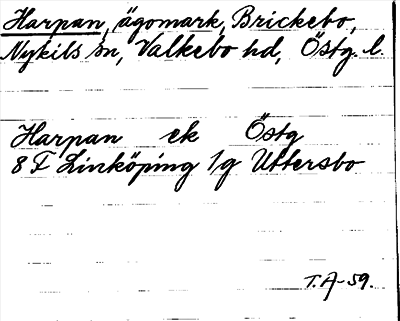 Harpan, ägomark, Brickebo,
Nykils sn, Valkebo hd, Östg. l.
Harpan ek Östg
8 F Linköping 1/g Uttersbo
T.A-59.